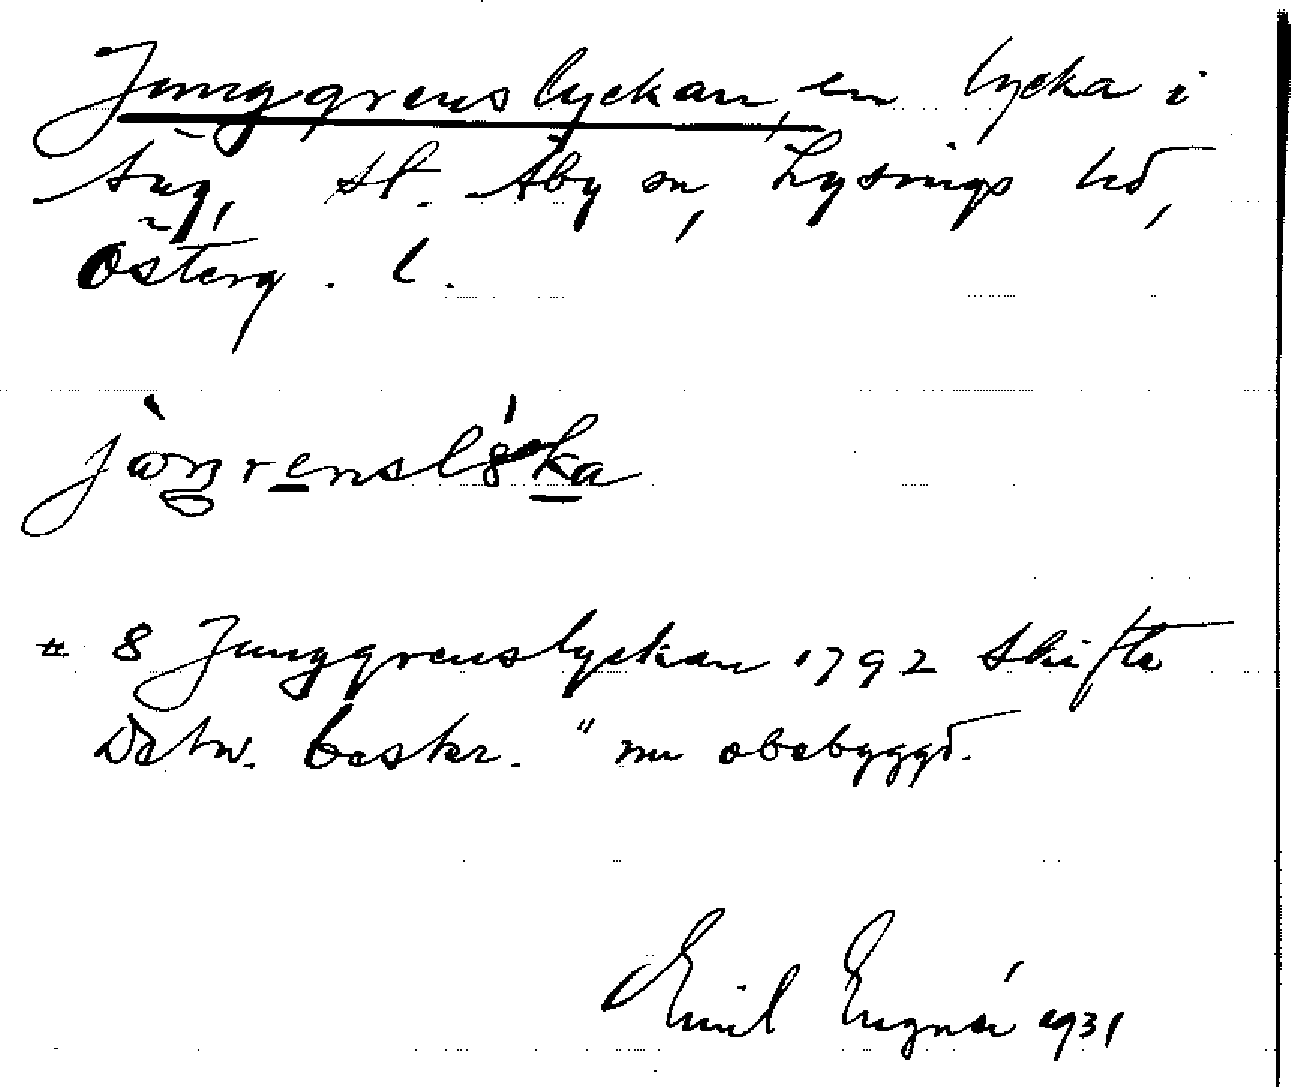 Junggrenslyckan, en lycka i
Säg, St. Åby sn, Lysings hd,
Österg. l.
# 8 Junggrenslyckan 1792 Skifte
Detn. beskr. " nu obebyggd.
Emil Engnér 1931